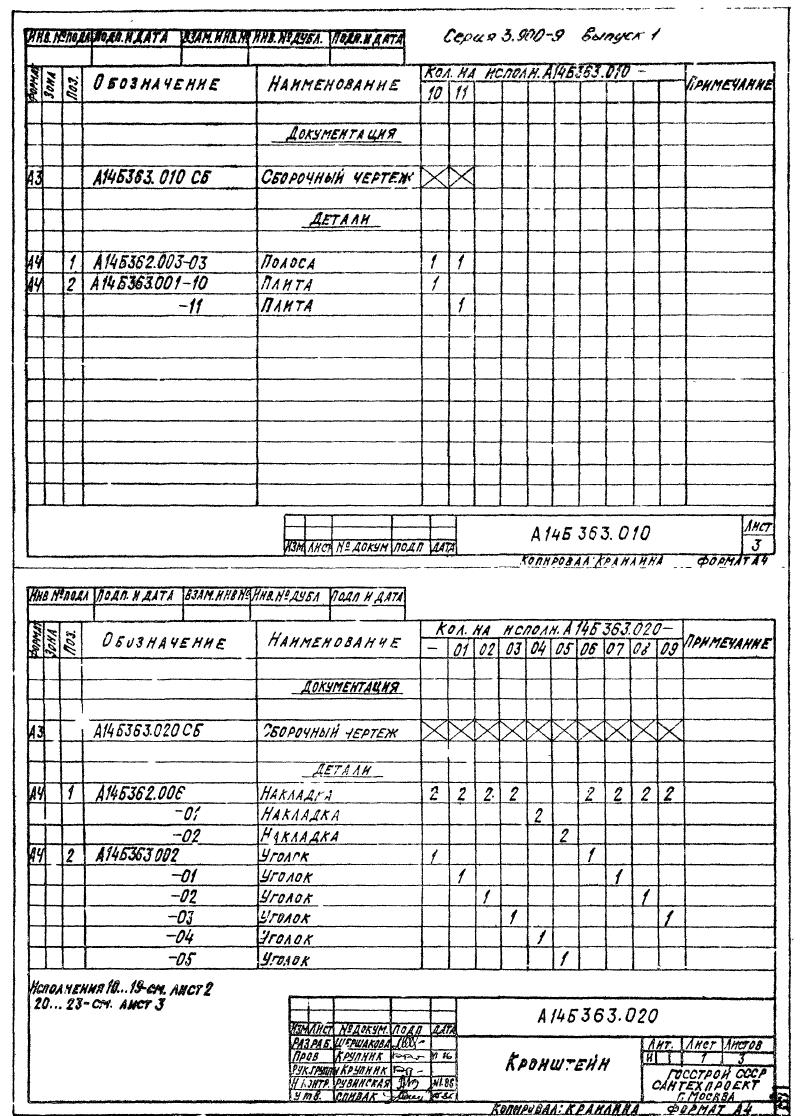 Серия 3.900-9 Выпуск 1
ИНВ.№ПОДЛ ПОДП. И ДАТА ВЗАМ.ИНВ.№ ИНВ.№ДУБЛ. ПОДП. И ДАТА
ФОРМАТ ЗОНА ПОЗ. ОБОЗНАЧЕНИЕ НАИМЕНОВАНИЕ КОЛ. НА ИСПОЛН. А14Б363.010 – ПРИМЕЧАНИЕ
10 11
ДОКУМЕНТАЦИЯ
А3 А14Б363.010 СБ СБОРОЧНЫЙ ЧЕРТЕЖ X X
ДЕТАЛИ
А4 1 А14Б362.003-03 ПОЛОСА 1 1
А4 2 А14Б363.001-10 ПЛИТА 1
-11 ПЛИТА 1
А14Б363.010 ЛИСТ
3
ИЗМ ЛИСТ № ДОКУМ ПОДП ДАТА
КОПИРОВАЛ: КРАНЛИНА ФОРМАТ А4
ИНВ №ПОДЛ ПОДП. И ДАТА ВЗАМ.ИНВ№ ИНВ.№ДУБЛ ПОДП И ДАТА
ФОРМАТ ЗОНА ПОЗ. ОБОЗНАЧЕНИЕ НАИМЕНОВАНИЕ КОЛ. НА ИСПОЛН. А14Б363.020– ПРИМЕЧАНИЕ
– 01 02 03 04 05 06 07 08 09
ДОКУМЕНТАЦИЯ
А3 А14Б363.020 СБ СБОРОЧНЫЙ ЧЕРТЕЖ X X X X X X X X X X
ДЕТАЛИ
А4 1 А14Б362.006 НАКЛАДКА 2 2 2 2 2 2 2 2
-01 НАКЛАДКА 2
-02 НАКЛАДКА 2
А4 2 А14Б363.002 УГОЛОК 1 1
-01 УГОЛОК 1 1
-02 УГОЛОК 1 1
-03 УГОЛОК 1 1
-04 УГОЛОК 1
-05 УГОЛОК 1
ИСПОЛНЕНИЯ 10...19-СМ. ЛИСТ 2
20... 23-СМ. ЛИСТ 3
А14Б363.020
ИЗМ ЛИСТ № ДОКУМ. ПОДП ДАТА
РАЗРАБ. ШЕРШАКОВА
ПРОВ КРУПНИК
РУК.ГРУППЫ КРУПНИК
Н.КОНТР. РУБИНСКАЯ
УТВ. СПИВАК
КРОНШТЕЙН
ЛИТ. ЛИСТ ЛИСТОВ
И 1 3
ГОССТРОЙ СССР
САНТЕХПРОЕКТ
Г.МОСКВА
КОПИРОВАЛ: КРАНЛИНА ФОРМАТ А4